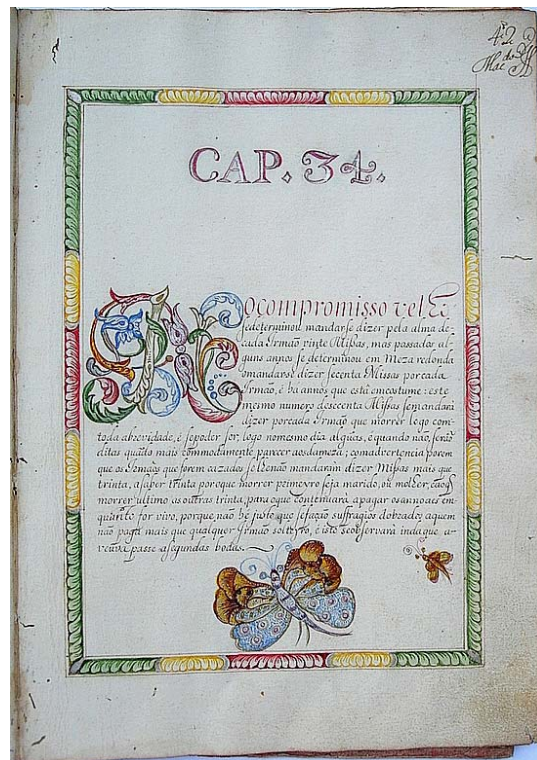 42
CAP. 34.
No compromisso vel
se determinou mandarse dizer pela alma de
cada Irmaõ vinte Missas, mas passados al-
guns annos se determinou em Meza redonda
omandarse dizer secenta Missas por cada
Irmaõ, é há annos que está encostume: este
mesmo numero desecenta Missas semandará
dizer porcada Irmaõ que morrer logo com
toda abrevidade, é sepoder ser, logo nomesmo dia algũas, é quando naõ, seraõ
ditas quãdo mais commodamente parecer aosdameza; comadvertencia porem
que os Irmaõs que forem cazados selhenaõ mandaram dizer Missas mais que
trinta, asaber trinta porcque morrer primeyro seja marido, ou molher, eao
morrer ultimo as outras trinta, para oque continuará apagar osannoaes em-
quãto for vivo, porque naõ he justo que sefaçaõ suffragios dobrados aquem
naõ paga mais que qualquer Irmaõ solteyro, é isto seobservará indaque a
veuva passe asegundas bodas.